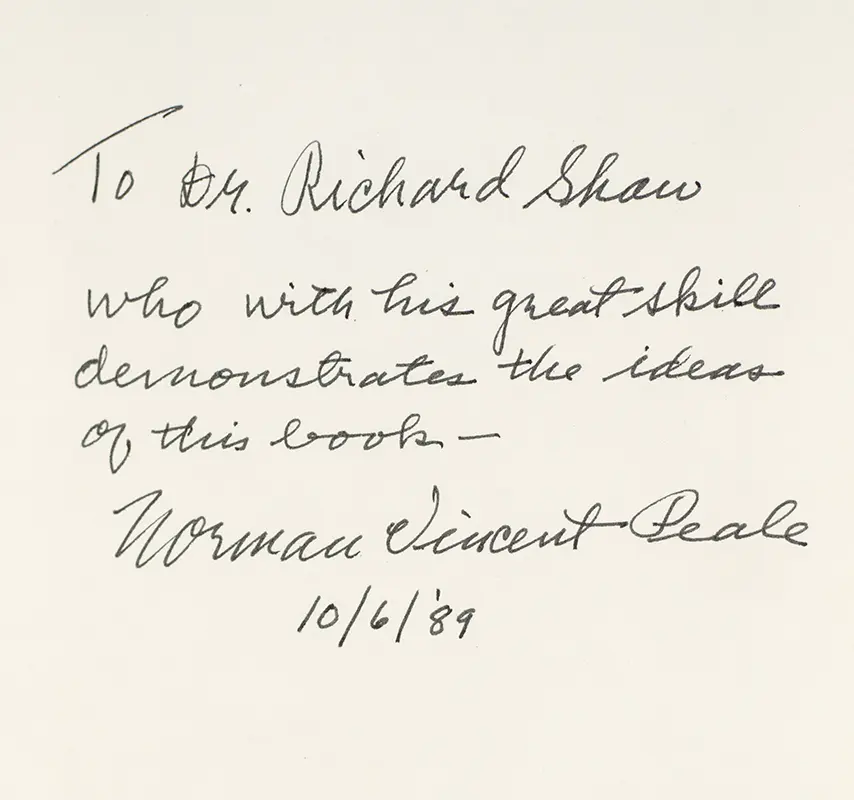 To Dr. Richard Shaw
who with his great skill
demonstrates the ideas
of this book —
Norman Vincent Peale
10/6/'89